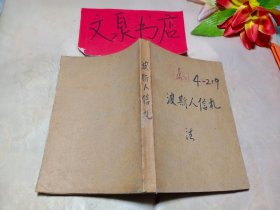 文泉书店
4-219
波斯人信札
法
波斯人信札